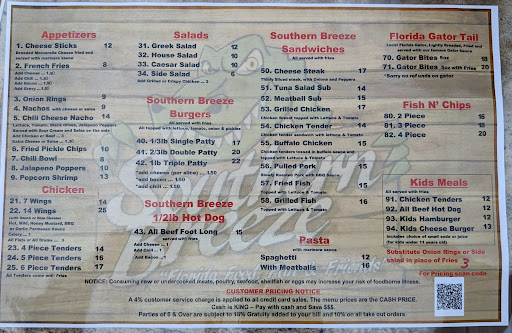 Appetizers
1. Cheese Sticks 12
Breaded Mozzarella Cheese fried and
served with marinara sauce
2. French Fries 8
Add Cheese
Add Chili
Add Bacon
Add Gravy
3. Onion Rings 9
4. Nachos with cheese or salsa 9
5. Chili Cheese Nacho 14
Lettuce, Tomato, Black Olives, Jalapeno Peppers
Served with Sour Cream and Salsa on the side
Add Chicken or Beef
Extra Cheese or Salsa
6. Fried Pickle Chips 10
7. Chili Bowl 8
8. Jalapeno Poppers 10
9. Popcorn Shrimp 13
Chicken
21. 7 Wings 14
22. 14 Wings 25
Hot, BBQ, Honey Mustard
or Garlic Parmesan Sauce
Celery
All Flats or All Drums
23. 4 Piece Tenders 14
24. 5 Piece Tenders 16
25. 6 Piece Tenders 17
All Tenders come with Fries
Salads
31. Greek Salad 12
32. House Salad 10
33. Caesar Salad 10
34. Side Salad 6
Add Grilled or Crispy Chicken
Southern Breeze
Burgers
All served with fries
All topped with lettuce, tomato, onion & pickles
40. 1/3lb Single Patty 17
41. 2/3lb Double Patty 20
42. 1lb Triple Patty 22
*add cheese (per slice)
*add bacon
*add chili
Southern Breeze
1/2lb Hot Dog
43. All Beef Foot Long 15
served with fries
Add Cheese
Add Chili
Add Bacon
Southern Breeze
Sandwiches
All served with fries
50. Cheese Steak 17
Thinly Sliced steak, with Onion and Peppers
51. Tuna Salad Sub 14
52. Meatball Sub 15
53. Grilled Chicken 17
Chicken breast topped with Lettuce & Tomato
54. Chicken Tender 14
Chicken tender sandwich with lettuce & Tomato
55. Buffalo Chicken 15
Chicken tenders tossed in buffalo sauce and
topped with Lettuce & Tomato
56. Pulled Pork 15
57. Fried Fish 15
Topped with Lettuce & Tomato
58. Grilled Fish 16
Topped with Lettuce & Tomato
Pasta
with marinara sauce
Spaghetti 12
With Meatballs 15
Florida Gator Tail
Local Florida Gator, Lightly Breaded, Fried and
served with our famous Gator Sauce
70. Gator Bites 5oz 18
71. Gator Bites 5oz with Fries 20
*Sorry no refunds on gator
Fish N' Chips
80. 2 Piece 16
81. 3 Piece 18
82. 4 Piece 20
Kids Meals
All served with fries
91. Chicken Tenders 12
92. All Beef Hot Dog 12
93. Kids Hamburger 12
94. Kids Cheese Burger 13
Includes choice of small soda or juice
(for kids under 11 years old)
Substitute Onion Rings or Side
salad in place of Fries 3
For Pricing scan code
NOTICE: Consuming raw or undercooked meats, poultry, seafood, shellfish or eggs may increase your risk of foodborne illness.
CUSTOMER PRICING NOTICE
A 4% customer service charge is applied to all credit card sales. The menu prices are the CASH PRICE.
Cash is KING - Pay with cash and Save $$$.
Parties of 6 & Over are subject to 18% Gratuity added to your bill and 10% on all take out orders.